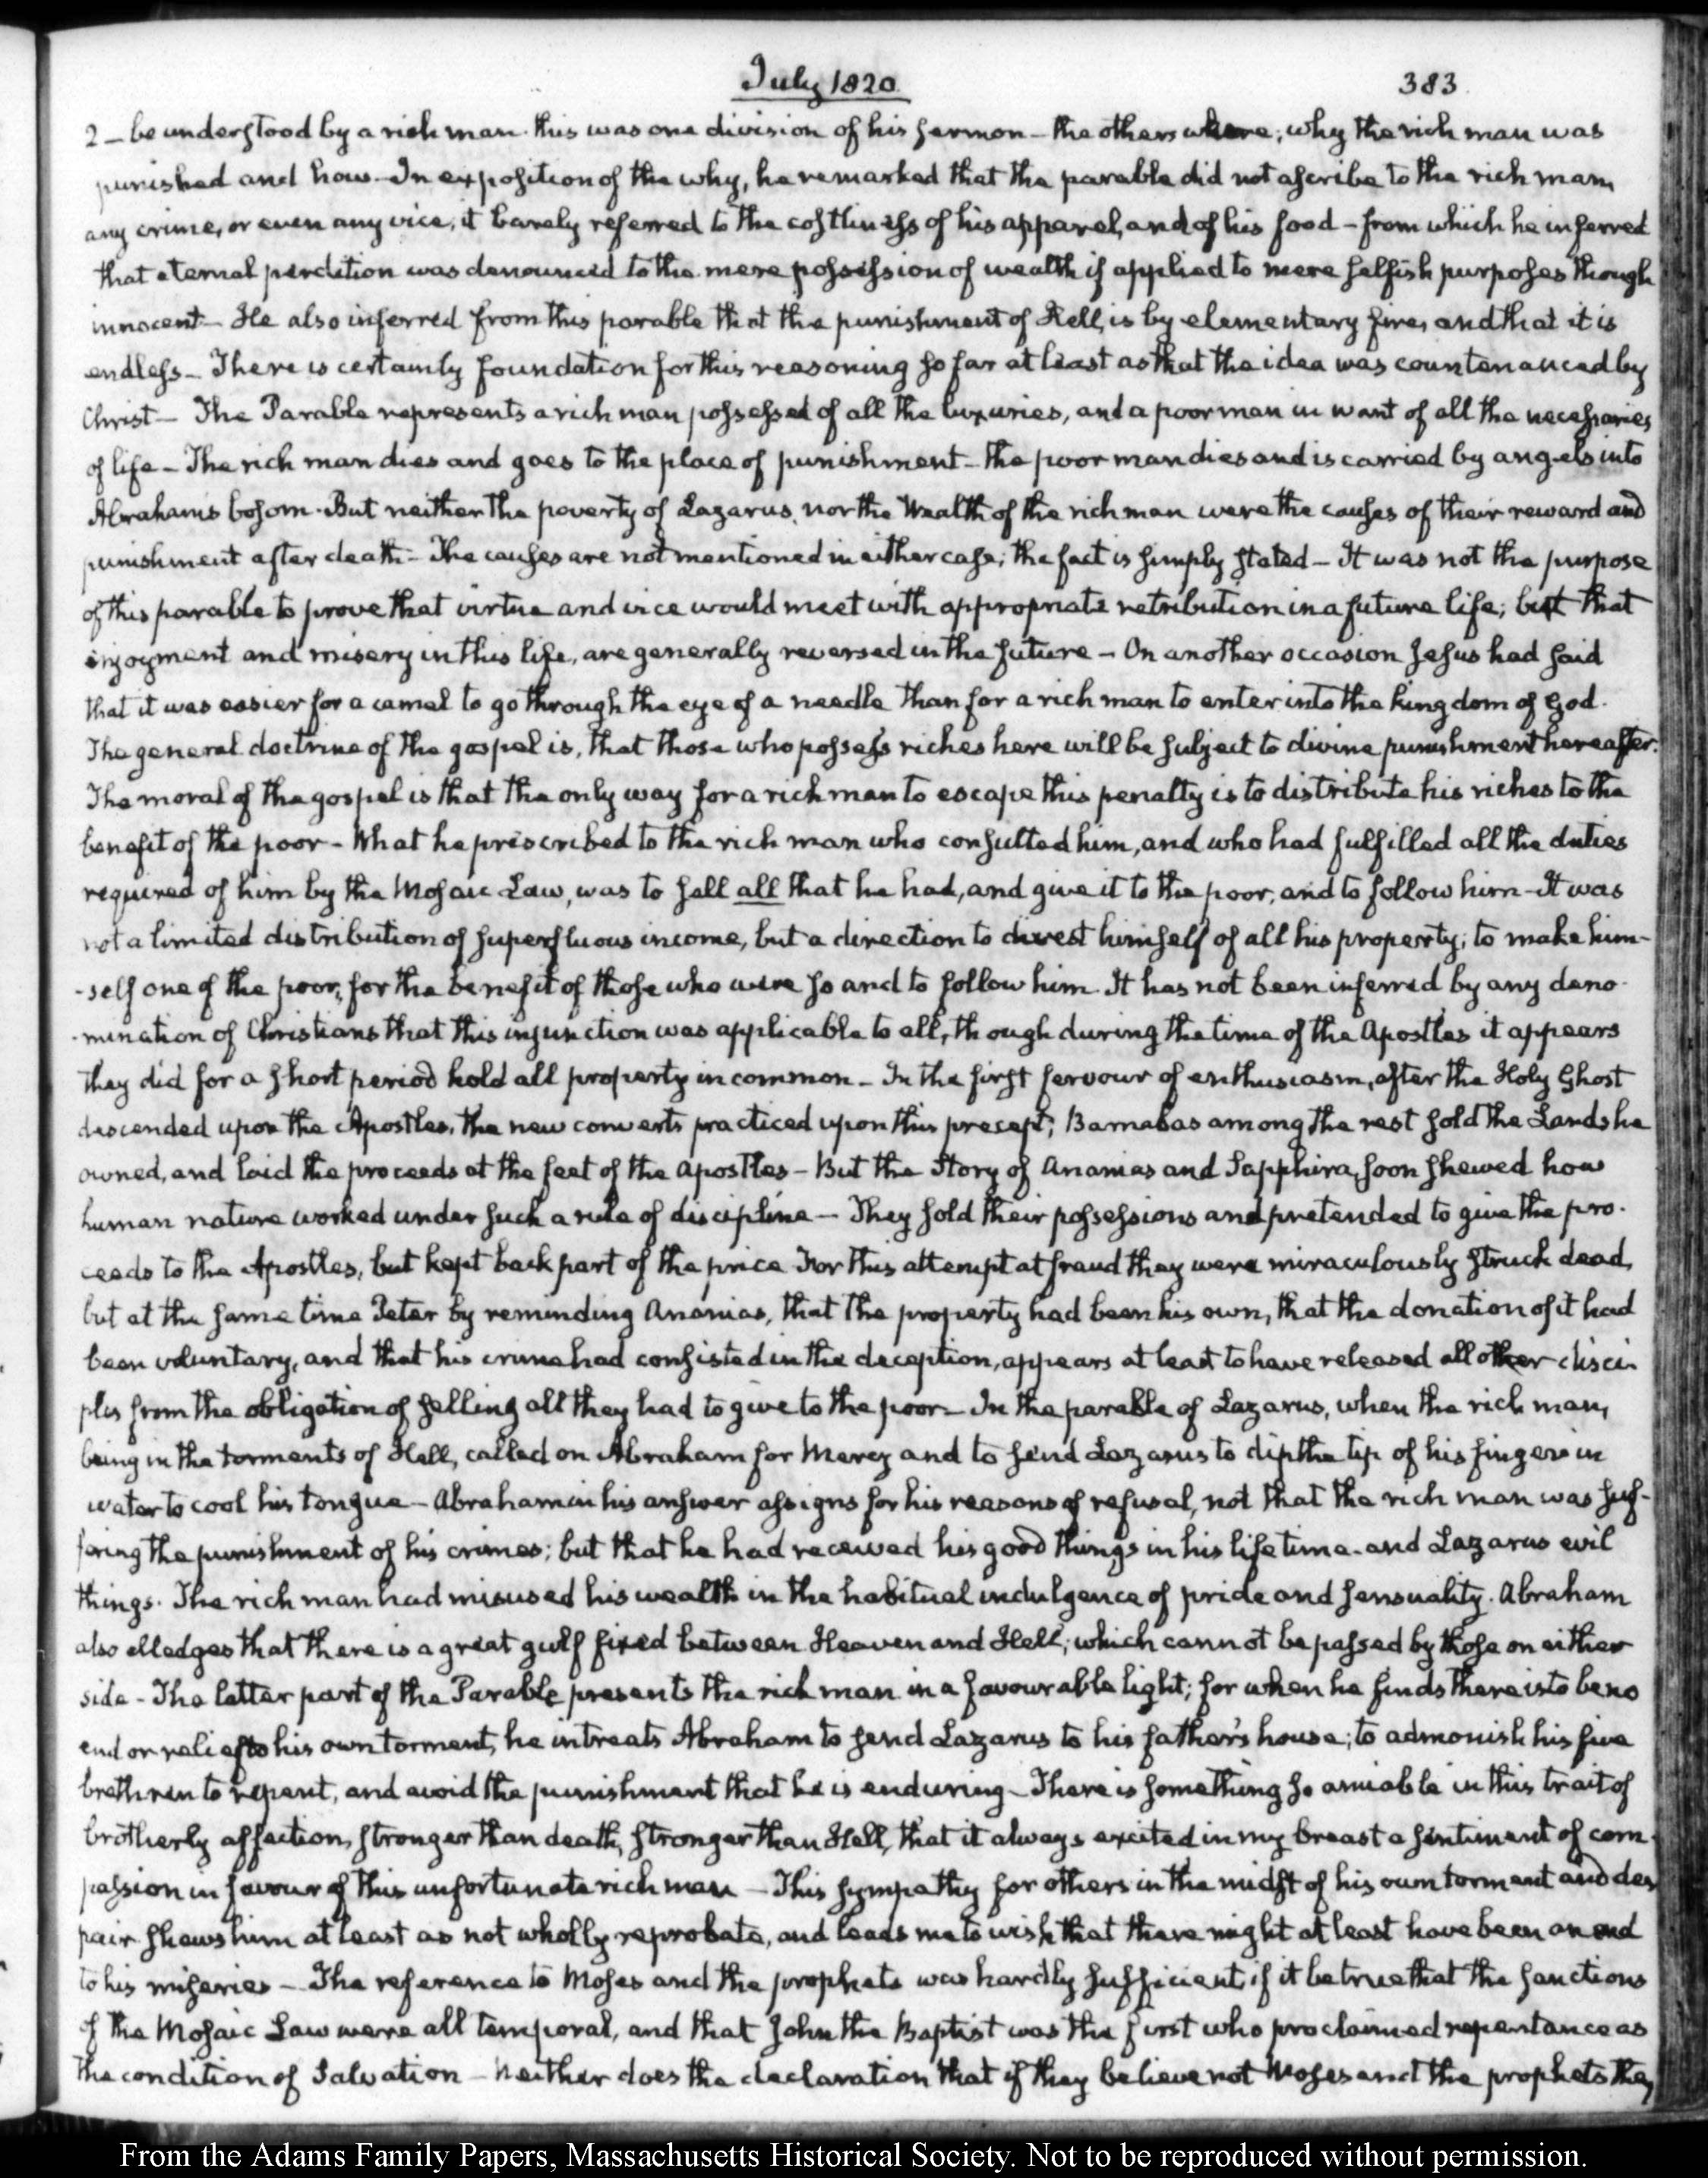 July 1820.
383.
2 — be understood by a rich man. this was one division of his sermon — the others where; why the rich man was
punished and how. In exposition of the why, he remarked that the parable did not ascribe to the rich man,
any crime, or even any vice; it barely referred to the costliness of his apparel, and of his food — from which he inferred
that eternal perdition was denounced to the mere possession of wealth if applied to mere selfish purposes though
innocent — He also inferred from this parable that the punishment of Hell, is by elementary fire, and that it is
endless — There is certainly foundation for this reasoning so far at least as that the idea was countenanced by
Christ — The Parable represents a rich man possessed of all the luxuries, and a poor man in want of all the necessaries
of life — The rich man dies and goes to the place of punishment — the poor man dies and is carried by angels into
Abraham's bosom. But neither the poverty of Lazarus, nor the Wealth of the rich man were the causes of their reward and
punishment after death — The causes are not mentioned in either case; the fact is simply stated — It was not the purpose
of this parable to prove that virtue and vice would meet with appropriate retribution in a future life; but that
enjoyment and misery in this life, are generally reversed in the future — On another occasion Jesus had said
that it was easier for a camel to go through the eye of a needle than for a rich man to enter into the kingdom of God.
The general doctrine of the gospel is, that those who possess riches here will be subject to divine punishment hereafter.
The moral of the gospel is that the only way for a rich man to escape this penalty is to distribute his riches to the
benefit of the poor — What he prescribed to the rich man who consulted him, and who had fulfilled all the duties
required of him by the Mosaic Law, was to sell all that he had, and give it to the poor, and to follow him — It was
not a limited distribution of superfluous income, but a direction to divest himself of all his property; to make him-
-self one of the poor, for the benefit of those who were so and to follow him. It has not been inferred by any deno-
-mination of Christians that this injunction was applicable to all, though during the time of the Apostles it appears
they did for a short period hold all property in common — In the first fervour of enthusiasm, after the Holy Ghost
descended upon the Apostles, the new converts practiced upon this precept; Barnabas among the rest sold the Lands he
owned, and laid the proceeds at the feet of the Apostles — But the Story of Ananias and Sapphira, soon shewed how
human nature worked under such a rule of discipline — They sold their possessions and pretended to give the pro-
ceeds to the Apostles, but kept back part of the price For this attempt at fraud they were miraculously struck dead,
but at the same time Peter by reminding Ananias, that the property had been his own, that the donation of it had
been voluntary, and that his crime had consisted in the deception, appears at least to have released all other disci-
ples from the obligation of selling all they had to give to the poor — In the parable of Lazarus, when the rich man,
being in the torments of Hell, called on Abraham for Mercy and to send Lazarus to dip the tip of his finger in
water to cool his tongue — Abraham in his answer assigns for his reasons of refusal, not that the rich man was suf-
fering the punishment of his crimes; but that he had received his good things in his life time and Lazarus evil
things. The rich man had misused his wealth in the habitual indulgence of pride and sensuality. Abraham
also alledges that there is a great gulf fixed between Heaven and Hell; which cannot be passed by those on either
side — The latter part of the Parable presents the rich man in a favourable light; for when he finds there is to be no
end or relief to his own torment, he intreats Abraham to send Lazarus to his father's house; to admonish his five
brethren to repent, and avoid the punishment that he is enduring — There is something so amiable in this trait of
brotherly affection, stronger than death, stronger than Hell, that it always excited in my breast a sentiment of com-
passion in favour of this unfortunate rich man — This sympathy for others in the midst of his own torment and des
pair shews him at least as not wholly reprobate, and leads me to wish that there might at least have been an end
to his miseries — The reference to Moses and the prophets was hardly sufficient, if it be true that the sanctions
of the Mosaic Law were all temporal, and that John the Baptist was the first who proclaimed repentance as
the condition of Salvation — Neither does the declaration that if they believe not Moses and the prophets they
From the Adams Family Papers, Massachusetts Historical Society. Not to be reproduced without permission.